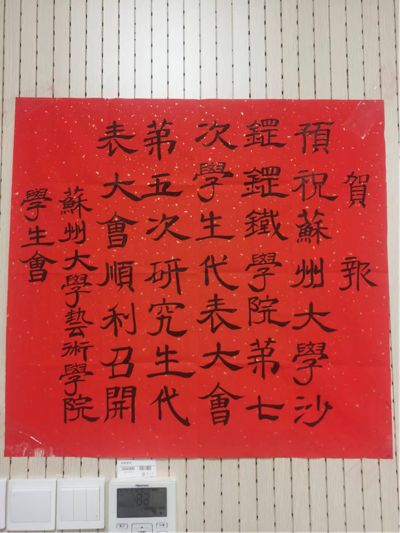 賀報
預祝蘇州大學沙
鎠鎠鐵學院第七
次學生代表大會
第五次研究生代
表大會順利召開
蘇州大學藝術學院
學生會
Hisense